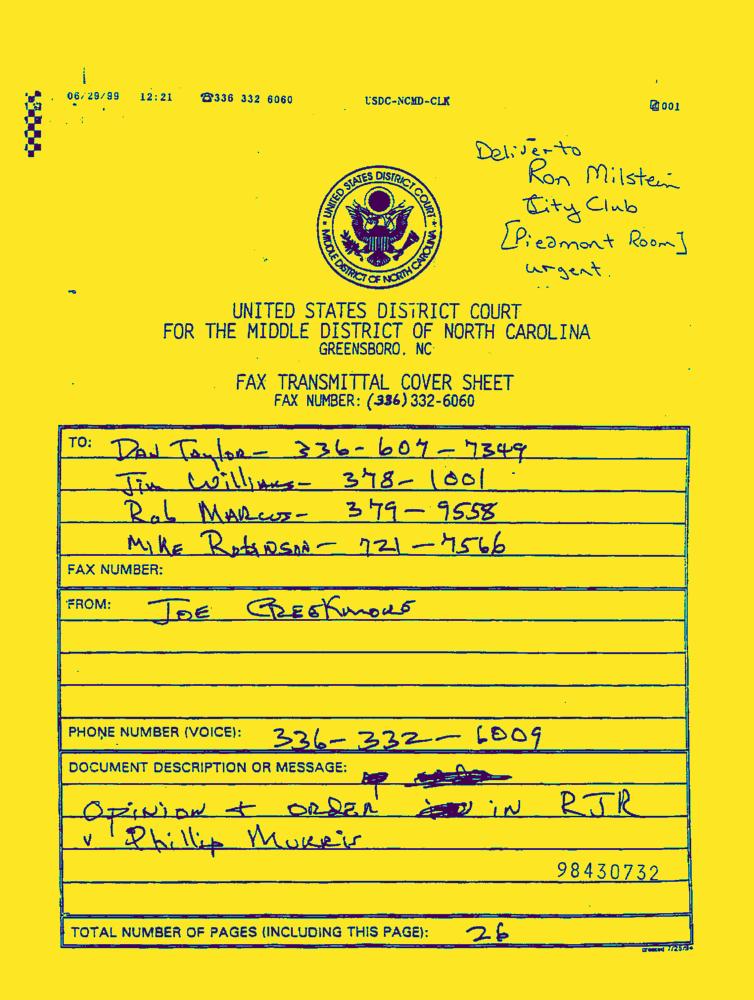 06/29/99 12:21 ☎336 332 6060 USDC-NCMD-CLK 001
Deliver to
Ron Milstein
City Club
[Piedmont Room]
urgent.
UNITED STATES DISTRICT COURT
MIDDLE DISTRICT OF NORTH CAROLINA
UNITED STATES DISTRICT COURT
FOR THE MIDDLE DISTRICT OF NORTH CAROLINA
GREENSBORO, NC
FAX TRANSMITTAL COVER SHEET
FAX NUMBER: (336) 332-6060
TO: Dan Taylor - 336-607-7349
Jim Williams - 378-1001
Rob Marcus - 379-9558
Mike Robinson - 721-7566
FAX NUMBER:
FROM: Joe Creekmore
PHONE NUMBER (VOICE): 336-332-6009
DOCUMENT DESCRIPTION OR MESSAGE:
Opinion + ORDER in RJR
v Phillip Morris
98430732
TOTAL NUMBER OF PAGES (INCLUDING THIS PAGE): 26